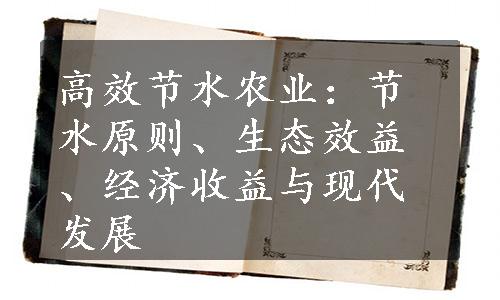 高效节水农业：节
水原则、生态效益
、经济收益与现代
发展